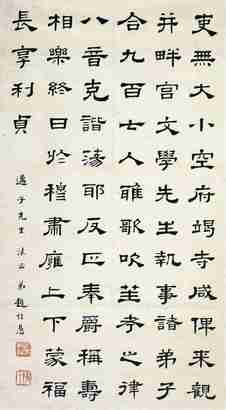 吏無大小空府竭寺咸俾來觀
并畔宮文學先生執事諸弟子
合九百七人雅歌吹笙考之律
八音克諧蕩邪反正奉爵稱壽
相樂終日於穆肅雍上下蒙福
長享利貞
子先生法正弟趙